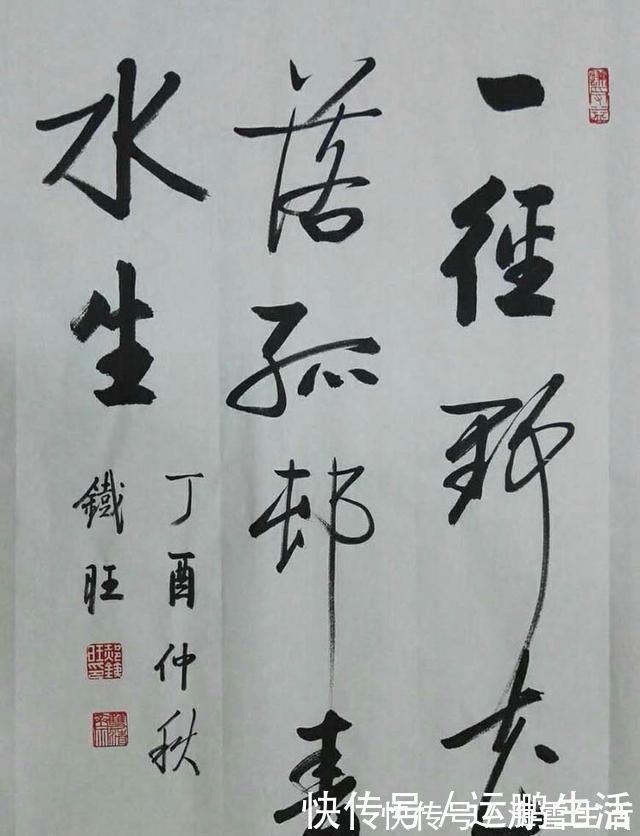 一徑野花
落孤邨春
水生
丁酉仲秋
鐵旺
快传号/运鹏生活